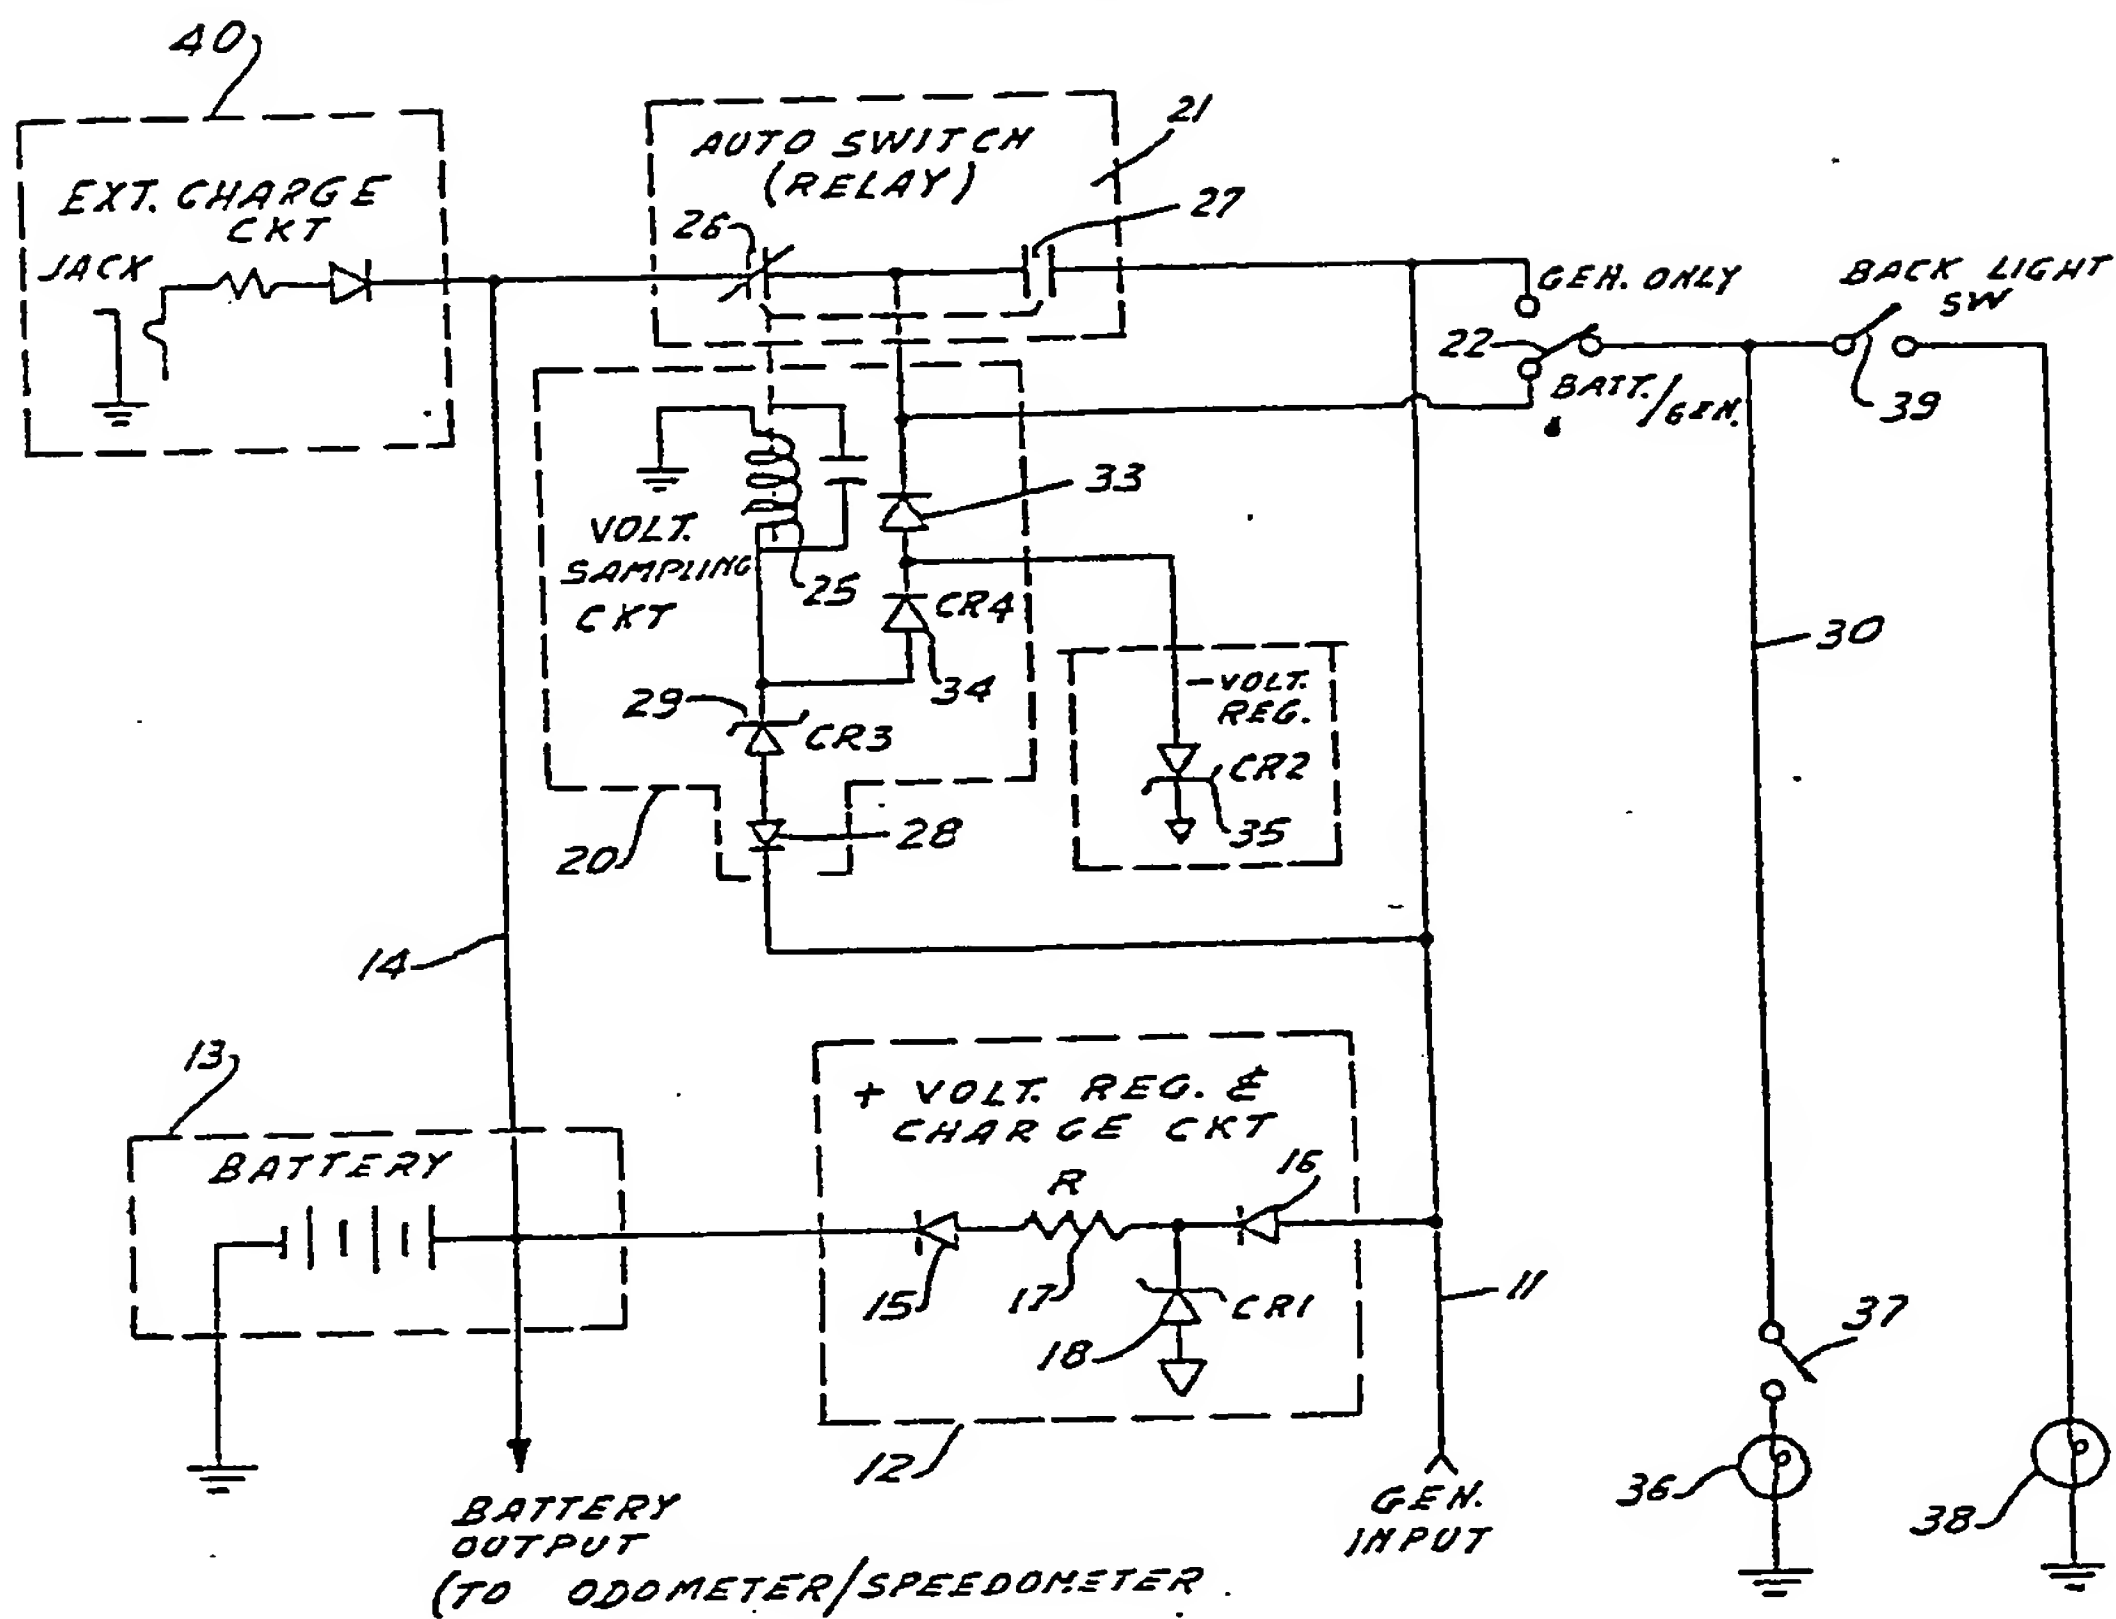 40
EXT. CHARGE
CKT
JACK
AUTO SWITCH
(RELAY)
21
26
27
GEN. ONLY
BACK LIGHT
SW
22
BATT./GEN.
39
33
VOLT.
SAMPLING
CKT
25
CR4
34
30
29
CR3
- VOLT.
REG.
CR2
35
28
20
14
13
BATTERY
+ VOLT. REG. &
CHARGE CKT
R
16
15
17
CR1
18
11
37
12
36
38
BATTERY
OUTPUT
(TO ODOMETER/SPEEDOMETER
GEN.
INPUT